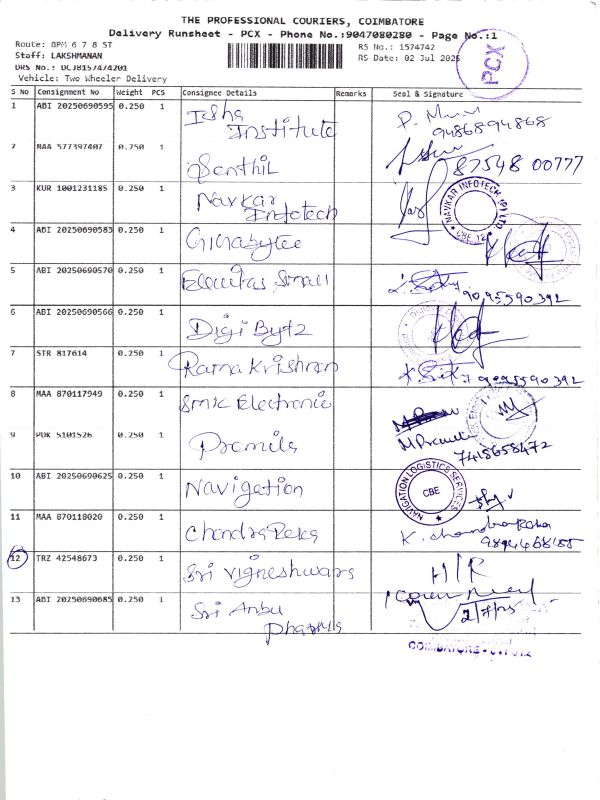 THE PROFESSIONAL COURIERS, COIMBATORE
Delivery Runsheet - PCX - Phone No.:9047080280 - Page No.:1
Route: GPM 6 7 8 ST
RS No.: 1574742
Staff: LAKSHMANAN
RS Date: 02 Jul 2025
DRS No.: DCJB157474201
Vehicle: Two Wheeler Delivery
PCX
S No Consignment No Weight PCS Consignee Details Remarks Seal & Signature
1 ABI 20250690595 0.250 1 Isha Institute P.
9486894868
2 MAA 577397407 0.250 1 Senthil 87548 00777
3 KUR 1001231185 0.250 1 Navkar Infotech NAVKAR INFOTECH (P) LTD CBE.12
4 ABI 20250690583 0.250 1
5 ABI 20250690570 0.250 1 Small 9095590392
6 ABI 20250690566 0.250 1 Digi Bytz
7 STR 817614 0.250 1 Rama Krishnan 9095590392
8 MAA 870117949 0.250 1 Smk Electronic
9 PUK 5101526 0.250 1 Premila M Premila
7418658472
10 ABI 20250690625 0.250 1 Navigation NAVIGATION LOGISTICS SERVICES CBE
11 MAA 870118020 0.250 1 Chandra Reka K. Chandra Reka
12 TRZ 42548673 0.250 1 Sri Vigneshwars H/R
13 ABI 20250690685 0.250 1 Sri Anbu Pharma
2/7/25
COIMBATORE - 641 012